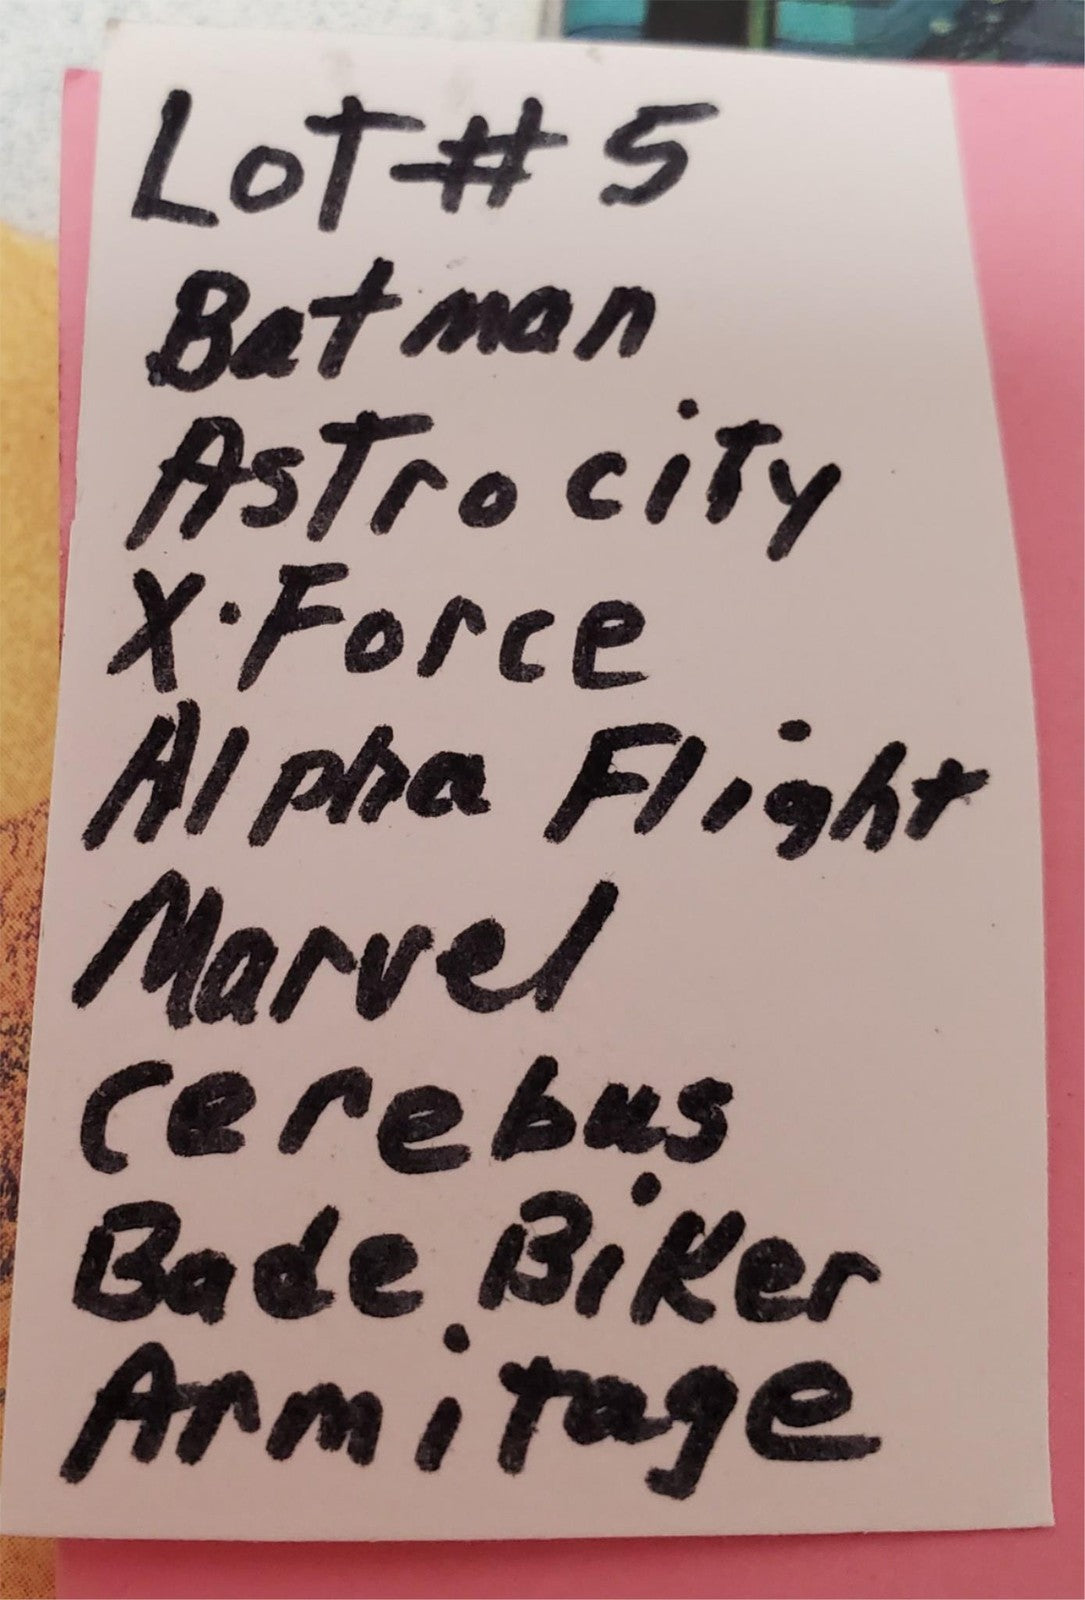 Lot # 5
Batman
Astro city
X-Force
Alpha Flight
Marvel
Cerebus
Bade Biker
Armitage